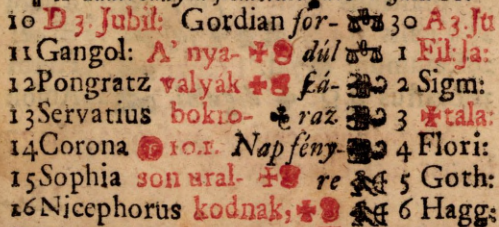 10 D 3. Jubil: Gordian for- 30 A 3. Ju
11 Gangol: A' nya- dúl 1 Fil: Ja:
12 Pongratz valyák fá- 2 Sigm:
13 Servatius bokro- raz 3 tala:
14 Corona 10.1. Nap fény- 4 Flori:
15 Sophia son ural- re 5 Goth:
16 Nicephorus kodnak, 6 Hagg: